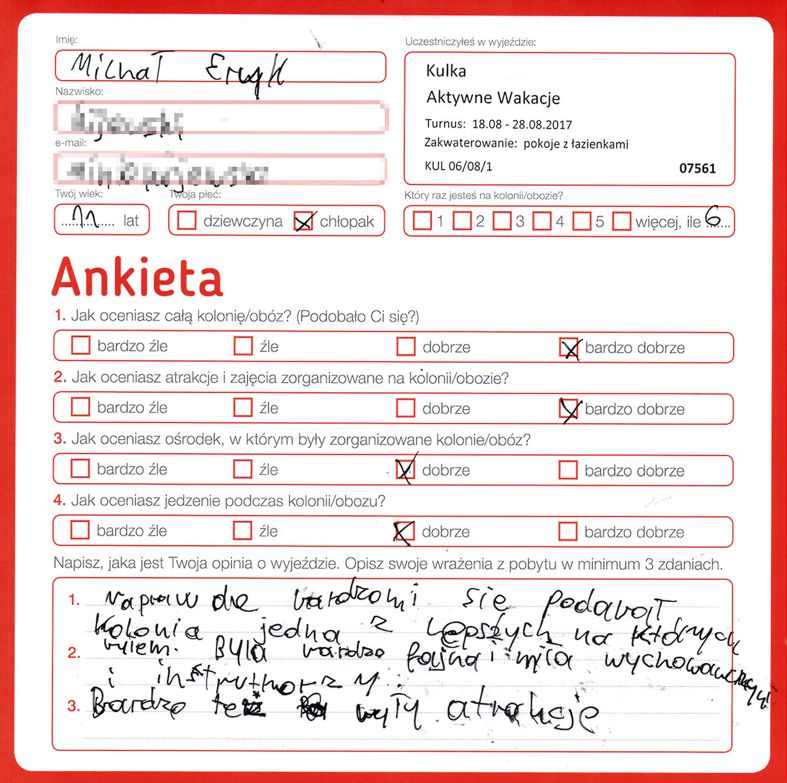 Imię:
Michał Eryk
Nazwisko:
e-mail:
Twój wiek:
11 lat
Twoja płeć:
dziewczyna chłopak
Uczestniczyłeś w wyjeździe:
Kulka
Aktywne Wakacje
Turnus: 18.08 - 28.08.2017
Zakwaterowanie: pokoje z łazienkami
KUL 06/08/1 07561
Który raz jesteś na kolonii/obozie?
1 2 3 4 5 więcej, ile 6
Ankieta
1. Jak oceniasz całą kolonię/obóz? (Podobało Ci się?)
bardzo źle źle dobrze bardzo dobrze
2. Jak oceniasz atrakcje i zajęcia zorganizowane na kolonii/obozie?
bardzo źle źle dobrze bardzo dobrze
3. Jak oceniasz ośrodek, w którym były zorganizowane kolonie/obóz?
bardzo źle źle dobrze bardzo dobrze
4. Jak oceniasz jedzenie podczas kolonii/obozu?
bardzo źle źle dobrze bardzo dobrze
Napisz, jaka jest Twoja opinia o wyjeździe. Opisz swoje wrażenia z pobytu w minimum 3 zdaniach.
1. napraw de bardzomi się podabał
kolonia jedna z lepszych na których
2. byłem. Była bardzo fajna i miła wychowawczyni
i instruktorzy
3. Bardzo też były atrakcje